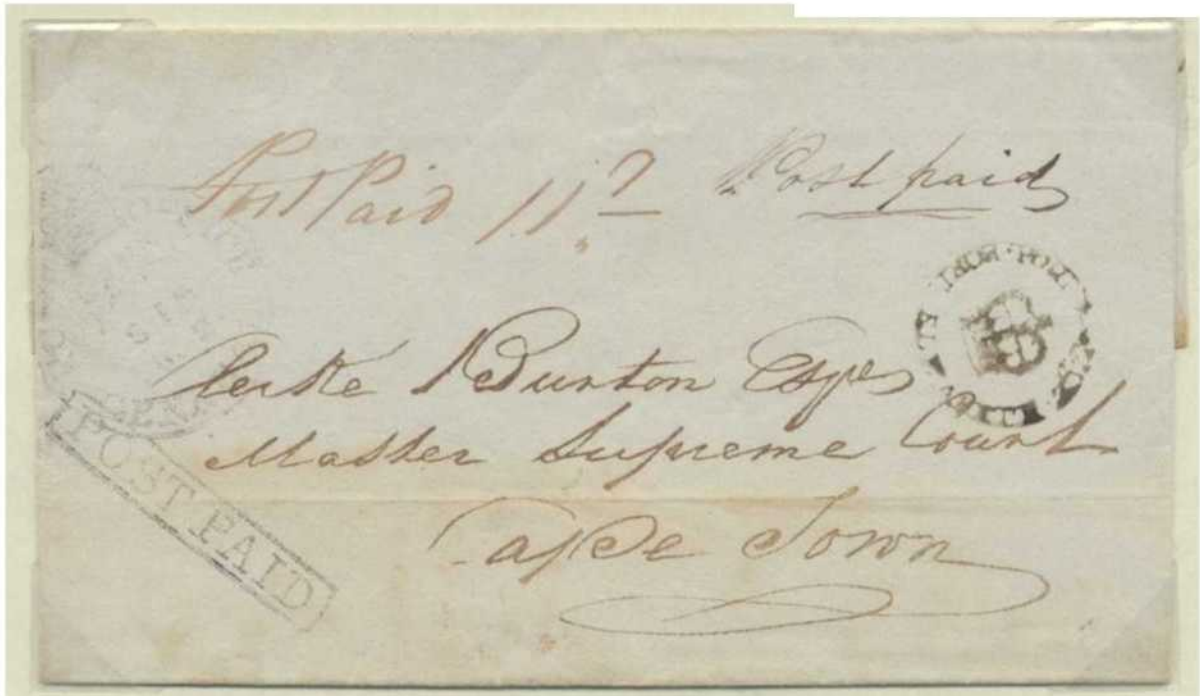 Post Paid 11 Post paid
Clerke Burton Esqre
Master Supreme Court
Cape Town
POST PAID